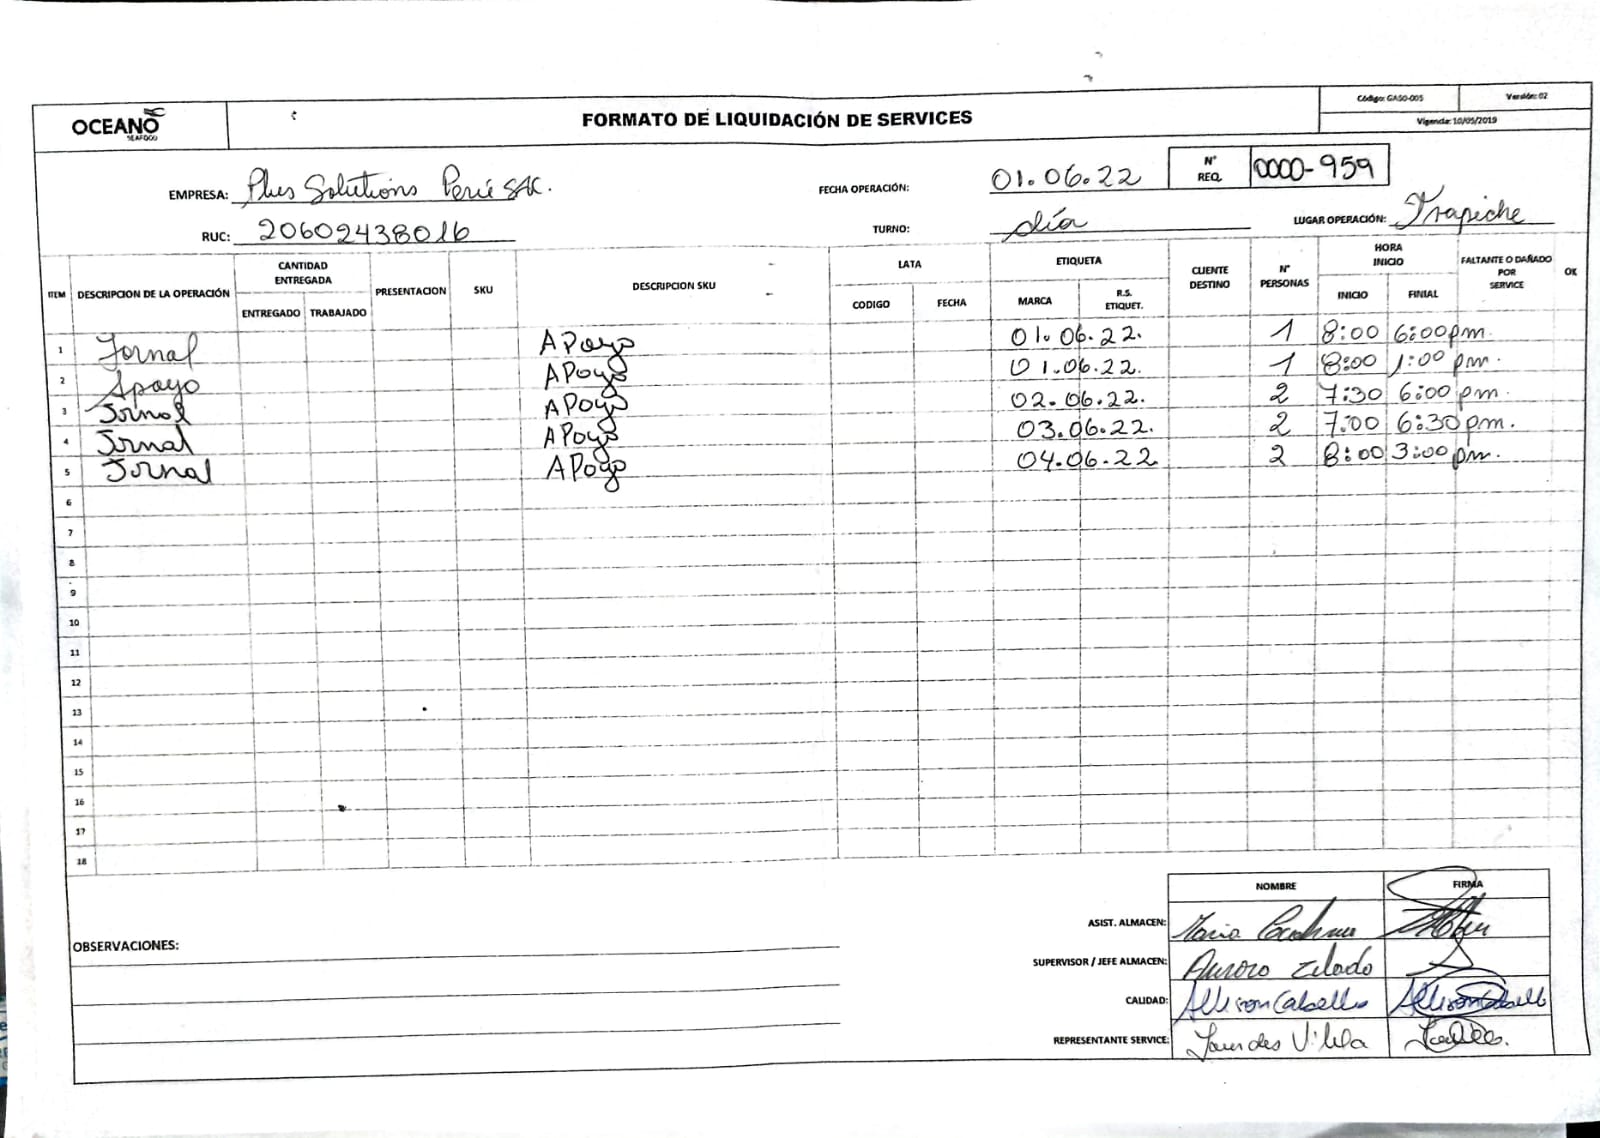 OCEANO
SEAFOOD
FORMATO DE LIQUIDACIÓN DE SERVICES
Código: GASO-005
Versión: 02
Vigencia: 10/05/2019
EMPRESA: Plus Solutions Perú SAC.
FECHA OPERACIÓN: 01.06.22
N° REQ. 0000-959
RUC: 20602438016
TURNO: día
LUGAR OPERACIÓN: Trapiche
ITEM DESCRIPCION DE LA OPERACIÓN CANTIDAD ENTREGADA ENTREGADO TRABAJADO PRESENTACION SKU DESCRIPCION SKU LATA CODIGO FECHA ETIQUETA MARCA R.S. ETIQUET. CLIENTE DESTINO N° PERSONAS HORA INICIO INICIO FINIAL FALTANTE O DAÑADO POR SERVICE OK
1 Jornal APoyo 01.06.22. 1 8:00 6:00pm.
2 Apoyo APoyo 01.06.22. 1 8:00 1:00 pm.
3 Jrnal APoyo 02.06.22. 2 7:30 6:00 pm.
4 Jrnal APoyo 03.06.22. 2 7:00 6:30pm.
5 Jornal APoyo 04.06.22 2 8:00 3:00 pm.
6
7
8
9
10
11
12
13
14
15
16
17
18
NOMBRE FIRMA
OBSERVACIONES:
ASIST. ALMACEN: Maria
SUPERVISOR / JEFE ALMACEN: Aurora
CALIDAD: Allison Cabello Allison Cabello
REPRESENTANTE SERVICE: Lourdes Vilela